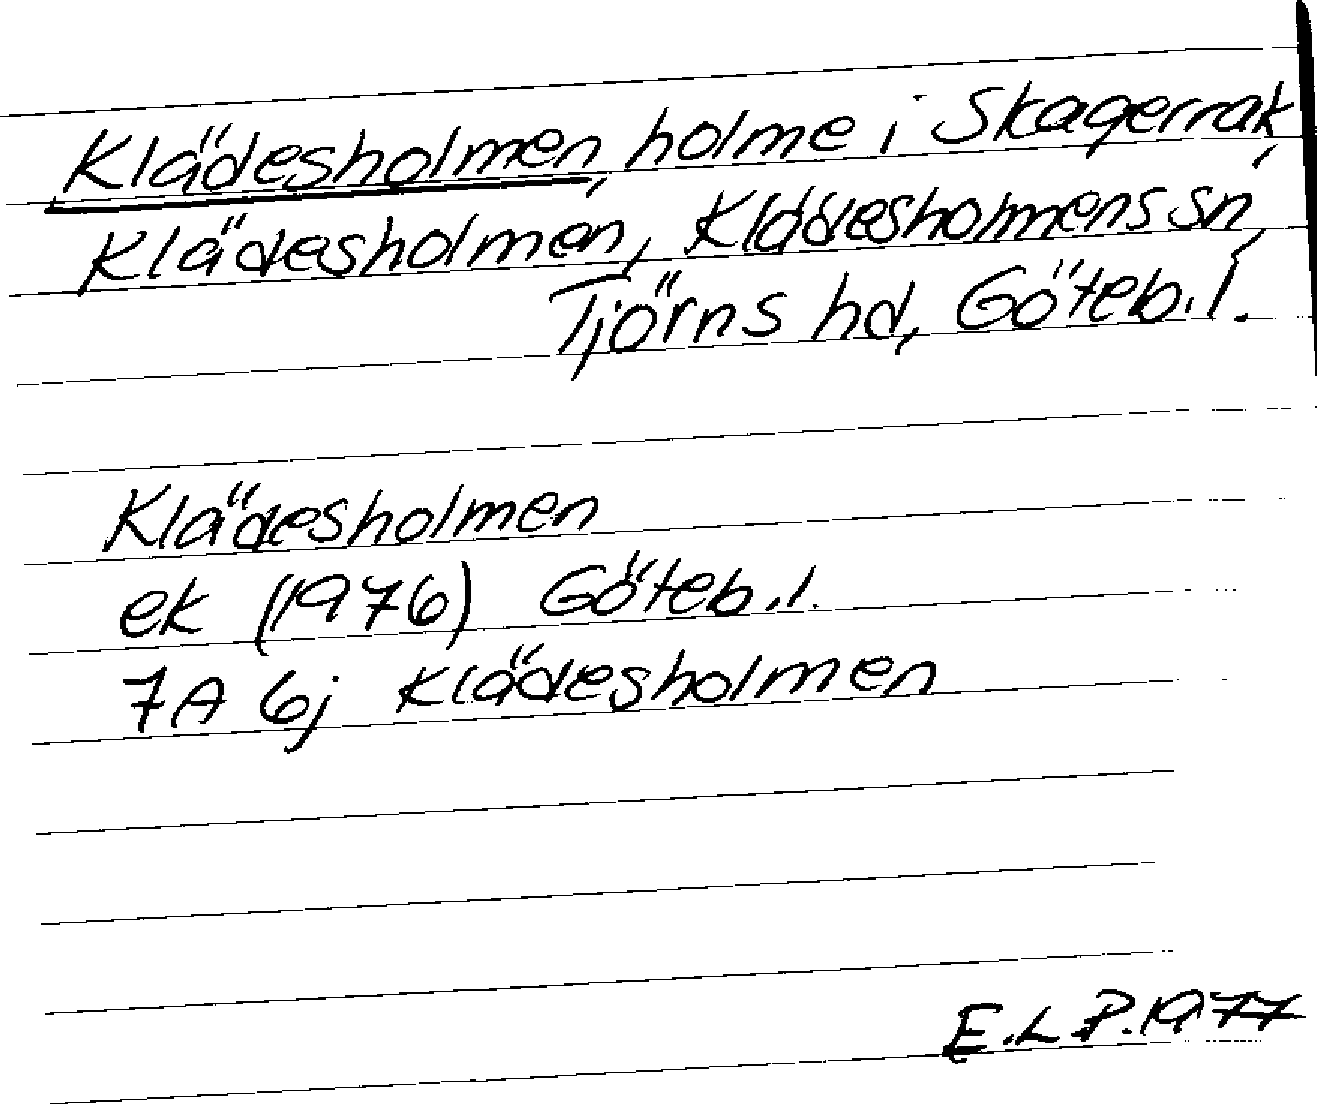 Klädesholmen, holme i Skagerrak,
Klädesholmen, Klädesholmens sn,
Tjörns hd, Göteb.l.
Klädesholmen
ek (1976) Göteb.l.
7A 6j Klädesholmen
E.L.P.1977